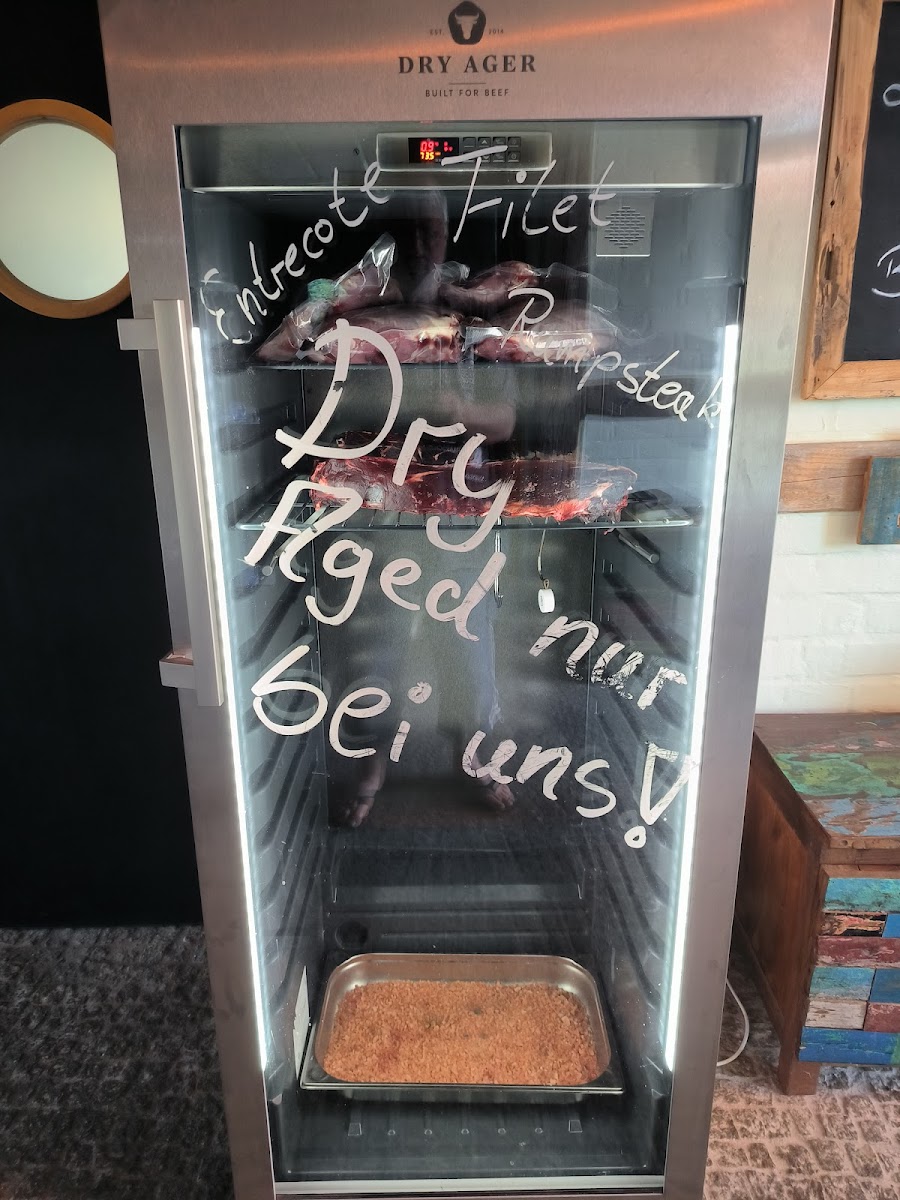 EST. 2014
DRY AGER
BUILT FOR BEEF
Entrecote
Filet
Rumpsteak
Dry
Aged nur
bei uns!